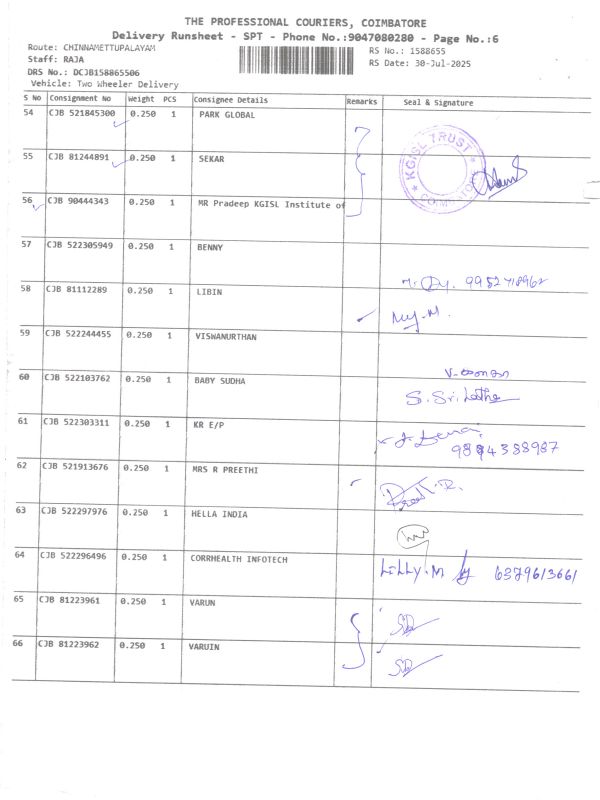 THE PROFESSIONAL COURIERS, COIMBATORE
Delivery Runsheet - SPT - Phone No.:9047080280 - Page No.:6
Route: CHINNAMETTUPALAYAM
RS No.: 1588655
Staff: RAJA
RS Date: 30-Jul-2025
DRS No.: DCJB158865506
Vehicle: Two Wheeler Delivery
S No Consignment No Weight PCS Consignee Details Remarks Seal & Signature
54 CJB 521845300 0.250 1 PARK GLOBAL
KGISL TRUST
55 CJB 81244891 0.250 1 SEKAR
56 CJB 90444343 0.250 1 MR Pradeep KGISL Institute of
57 CJB 522305949 0.250 1 BENNY
9952718962
58 CJB 81112289 0.250 1 LIBIN
59 CJB 522244455 0.250 1 VISWANURTHAN
60 CJB 522103762 0.250 1 BABY SUDHA
S. Sri Latha
61 CJB 522303311 0.250 1 KR E/P
9894388987
62 CJB 521913676 0.250 1 MRS R PREETHI
63 CJB 522297976 0.250 1 HELLA INDIA
64 CJB 522296496 0.250 1 CORRHEALTH INFOTECH
Lilly.M 6379613661
65 CJB 81223961 0.250 1 VARUN
66 CJB 81223962 0.250 1 VARUIN